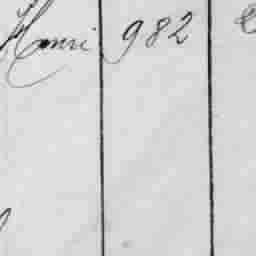 Henri 982